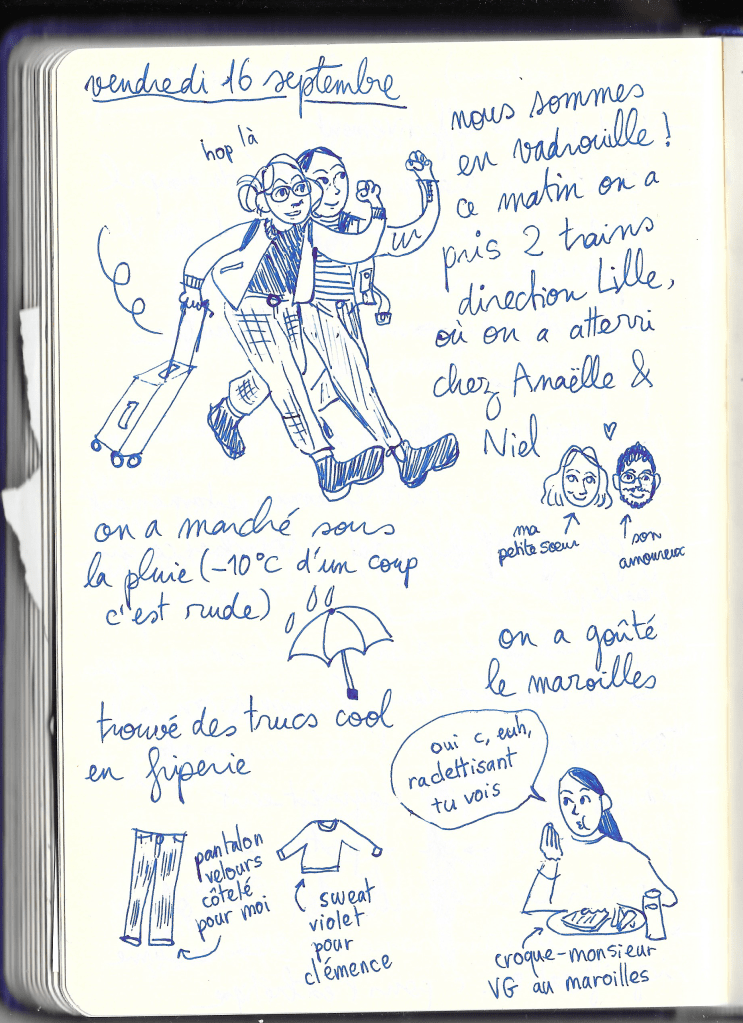 vendredi 16 septembre
hop là
nous sommes
en vadrouille !
ce matin on a
pris 2 trains
direction Lille,
où on a atterri
chez Anaëlle &
Niel
ma
petite soeur
son
amoureux
on a marché sous
la pluie (-10°C d'un coup
c'est rude)
on a goûté
le maroilles
trouvé des trucs cool
en friperie
oui c, euh,
radettisant
tu vois
pantalon
velours
côtelé
pour moi
sweat
violet
pour
clémence
croque-monsieur
VG au maroilles